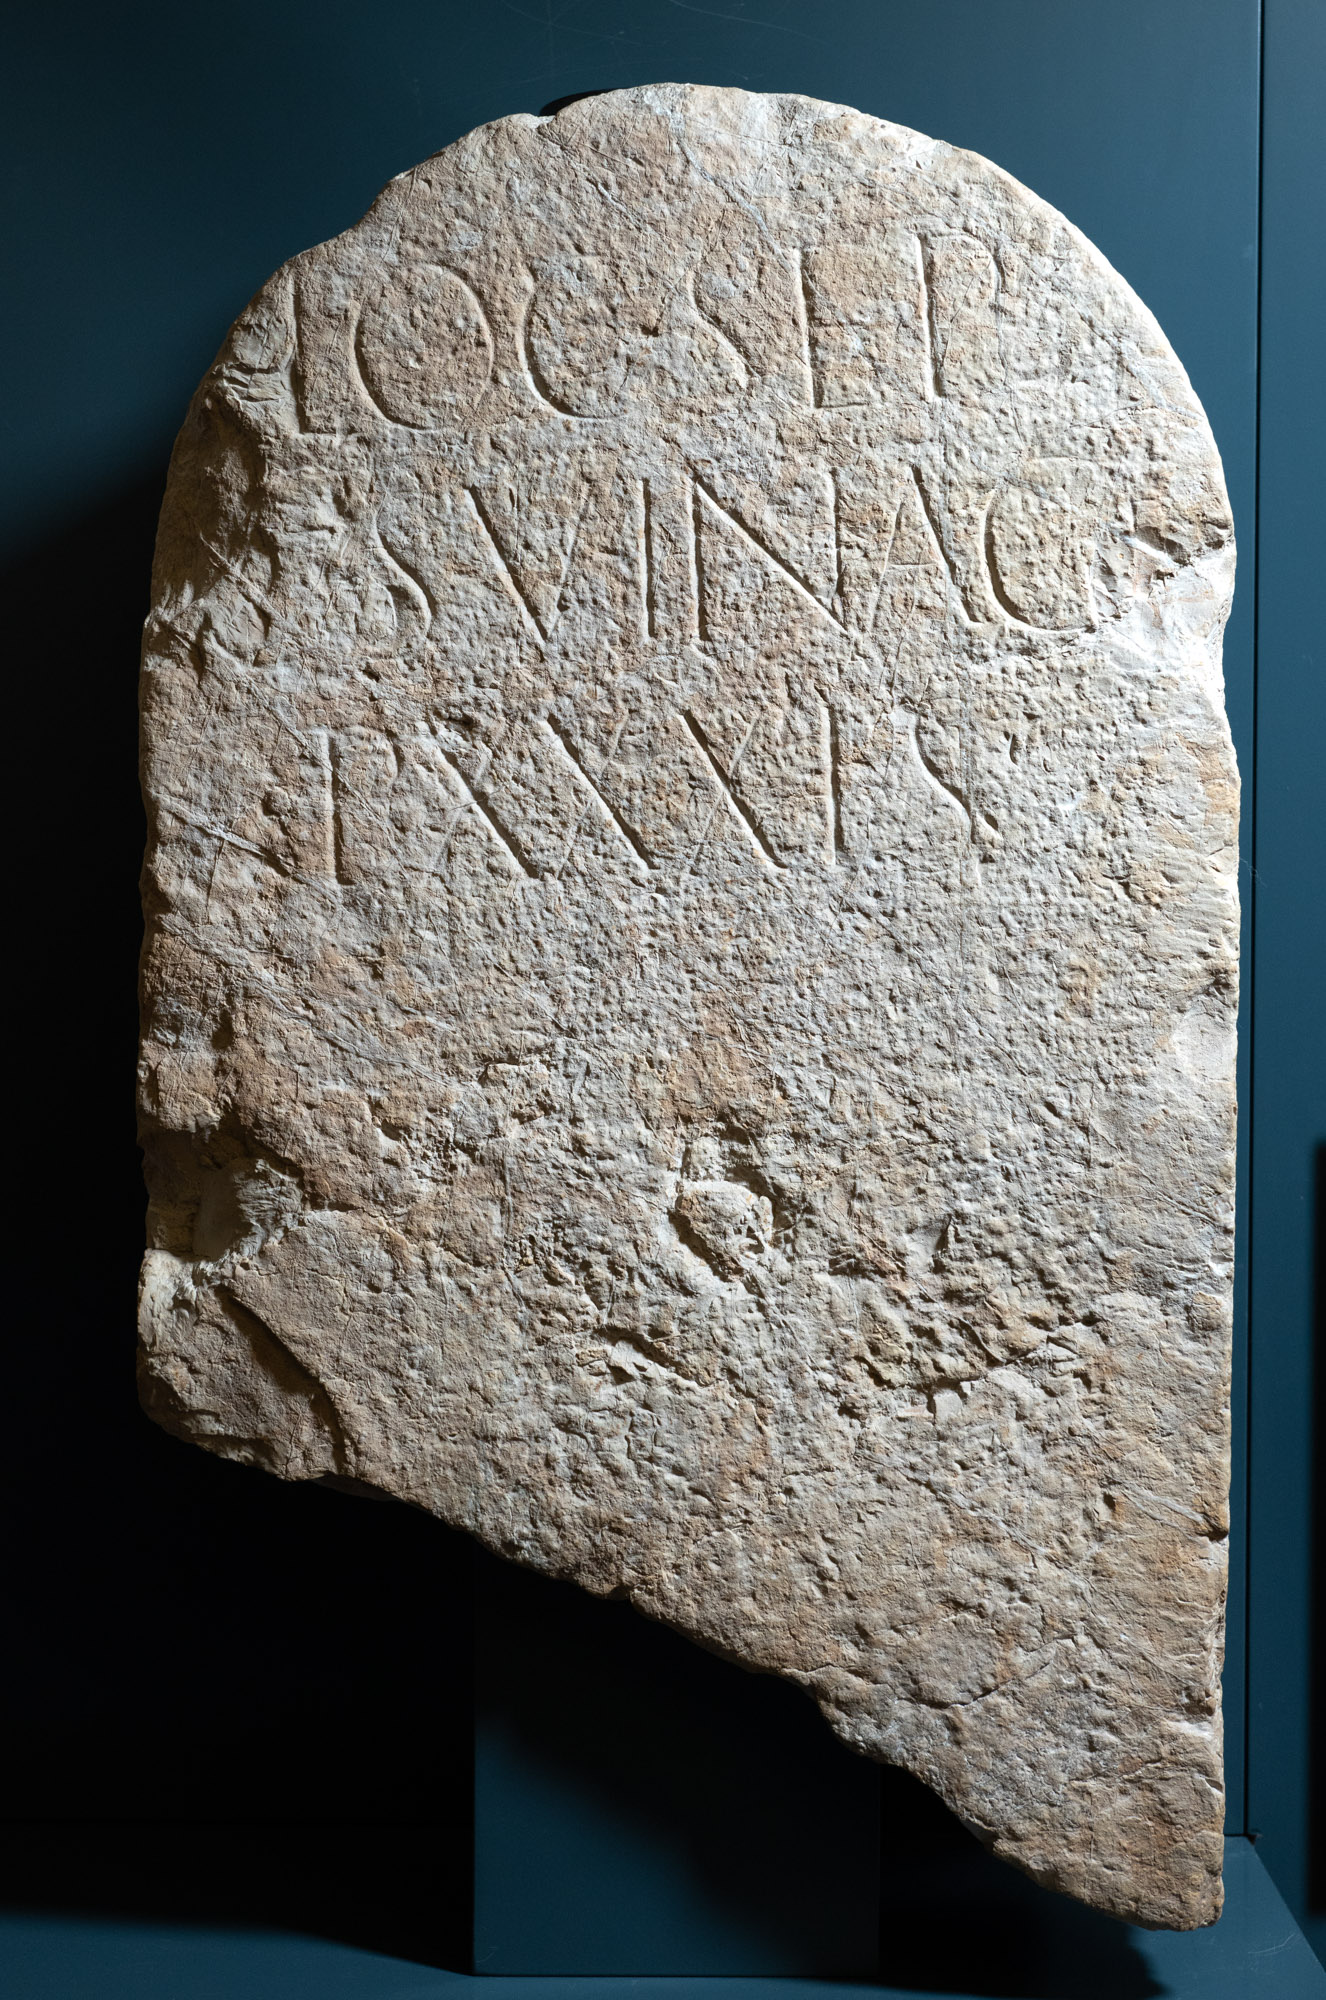 LOC SEP
S V IN AG
P XXXIS